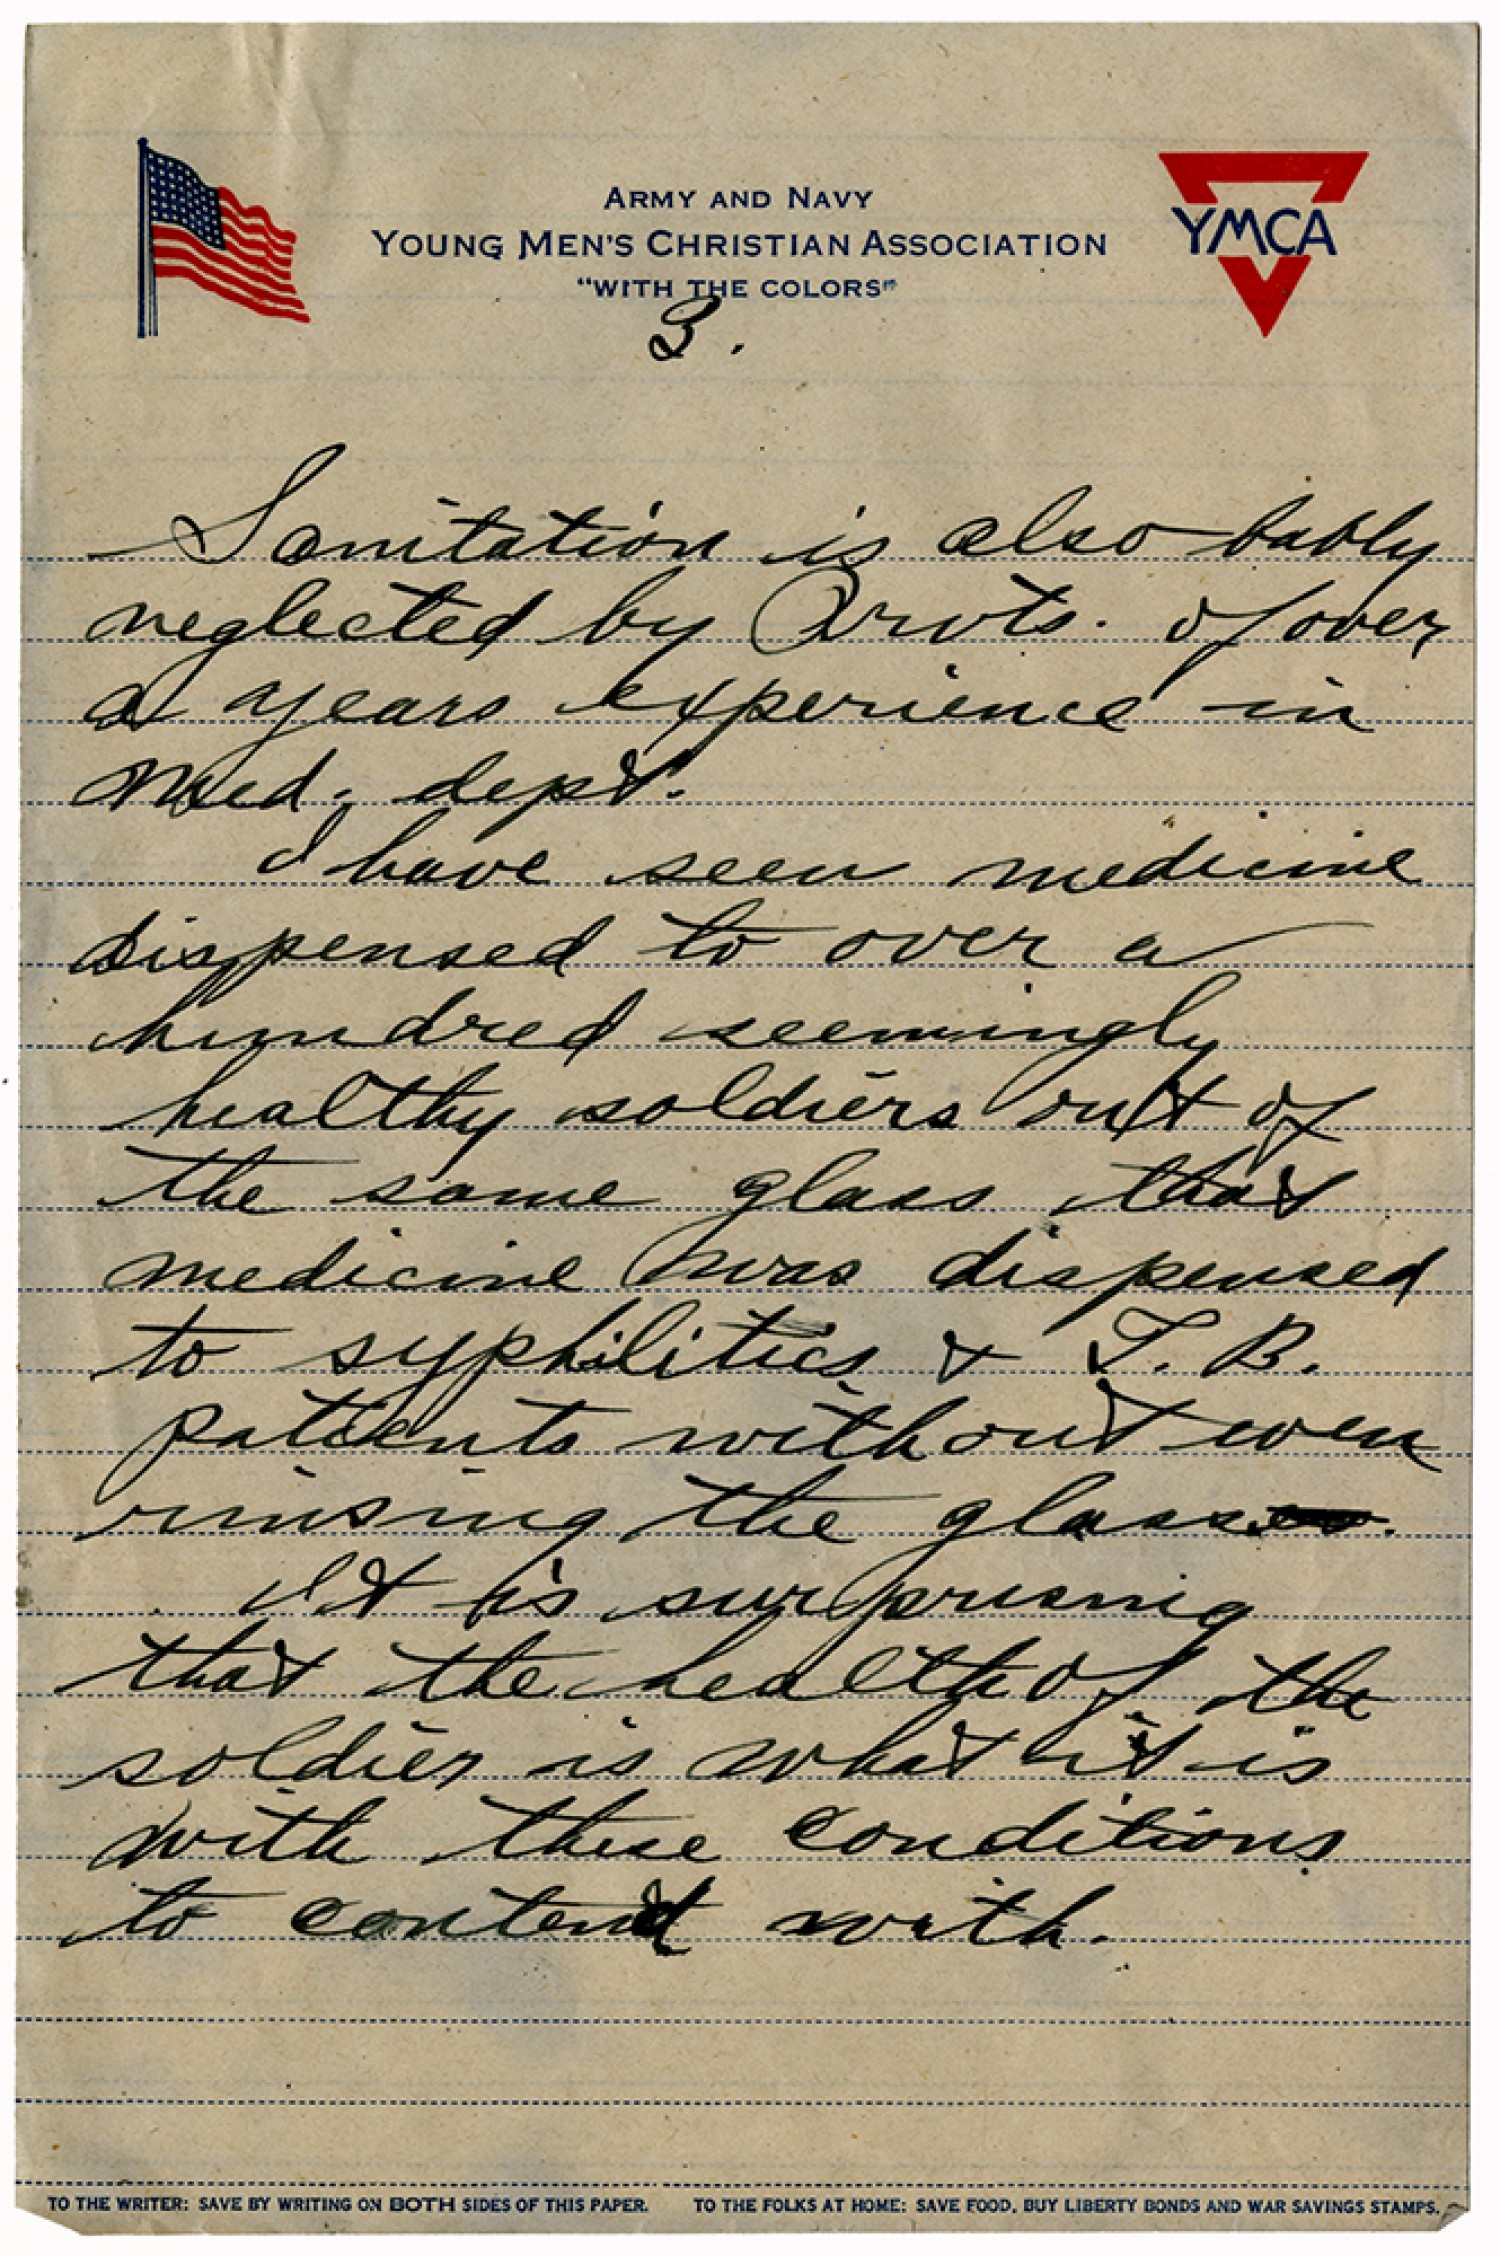 ARMY AND NAVY
YOUNG MEN'S CHRISTIAN ASSOCIATION
"WITH THE COLORS"
YMCA
3.
Sanitation is also bably
neglected by Prvts. of over
a years experience in
Med. dept.
I have seen medicine
dispensed to over a
hundred seemingly
healthy soldiers out of
the same glass that
medicine was dispensed
to syphilitics & T. B.
patients without even
rinsing the glass.
It is surprising
that the health of the
soldier is what it is
with these conditions
to contend with.
TO THE WRITER: SAVE BY WRITING ON BOTH SIDES OF THIS PAPER. TO THE FOLKS AT HOME: SAVE FOOD, BUY LIBERTY BONDS AND WAR SAVINGS STAMPS.